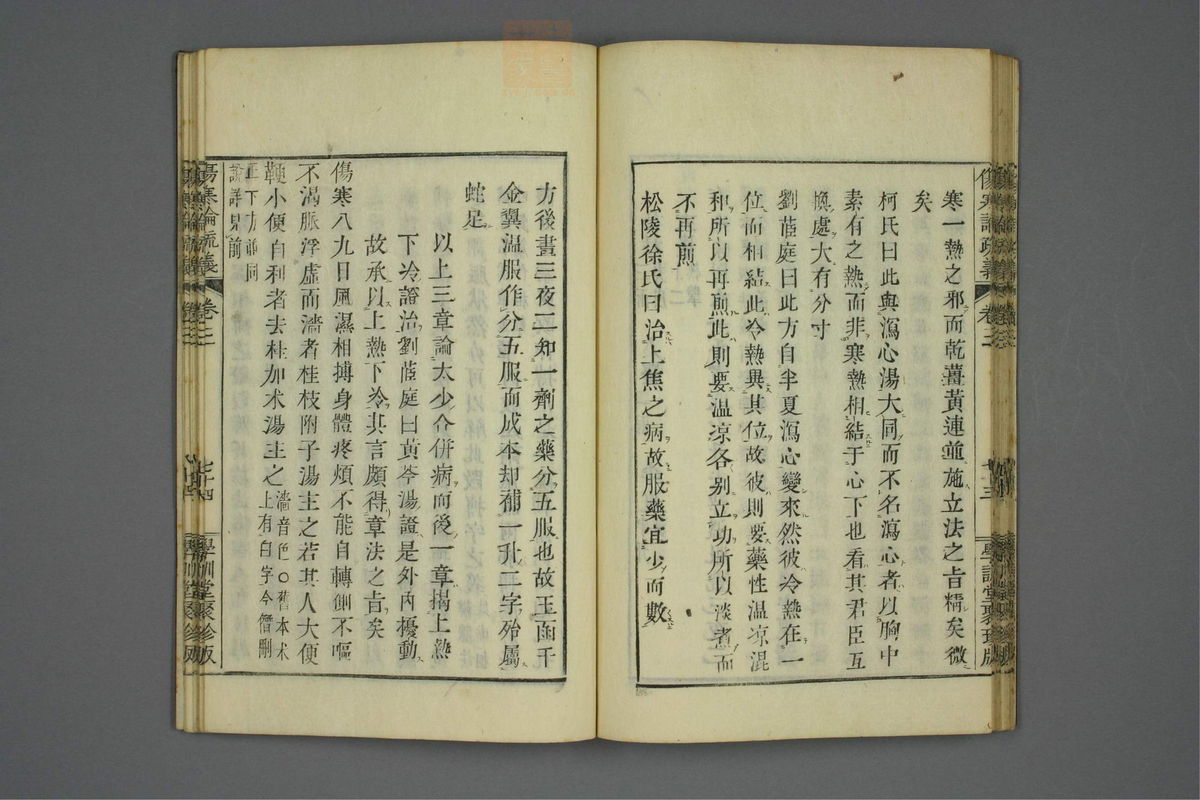 寒一熱之邪而乾薑黃連並施立法之旨精矣微
矣
柯氏曰此與瀉心湯大同而不名瀉心者以胸中
素有之熱而非寒熱相結于心下也看其君臣互
換處大有分寸
劉茝庭曰此方自半夏瀉心變來然彼冷熱在一
位而相結此冷熱異其位故彼則要藥性溫凉混
和所以再煎此則要溫凉各別立功所以淡煮而
不再煎
松陵徐氏曰治上焦之病故服藥宜少而數
方後晝三夜二知一劑之藥分五服也故玉函千
金翼溫服作分五服而成本却補一升二字殆屬
蛇足
以上三章論太少合併病而後一章揭上熱
下冷證治劉茝庭曰黃芩湯證是外內擾動
故承以上熱下冷其言頗得章法之旨矣
傷寒八九日風濕相搏身體疼煩不能自轉側不嘔
不渴脈浮虛而濇者桂枝附子湯主之若其人大便
鞕小便自利者去桂加朮湯主之濇音色○舊本朮
上有白字今僭刪
正下方並同
說詳見前
傷寒論疏義
卷三
七十四
學訓堂聚珍版